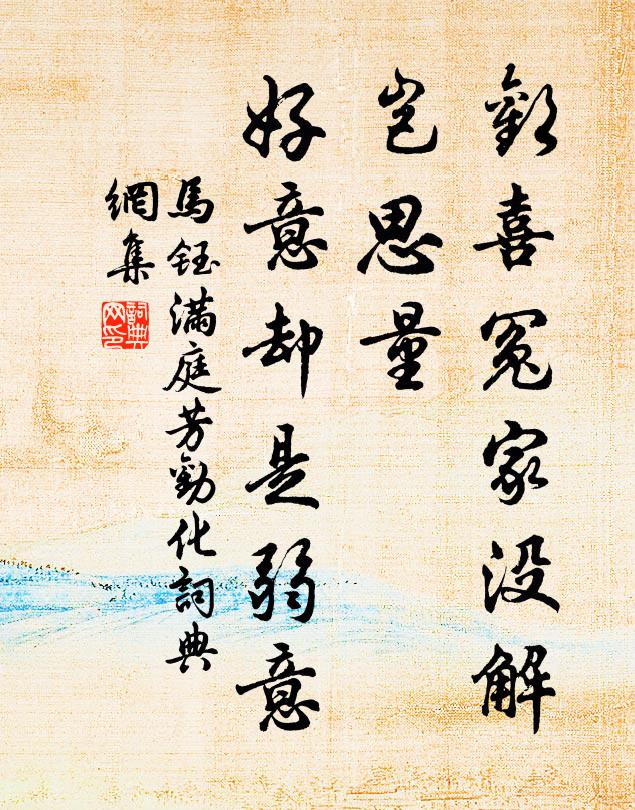 歡喜冤家没解
岂思量
好意却是弱意
馬鈺满庭芳勸化詞典
網集
詞典网印